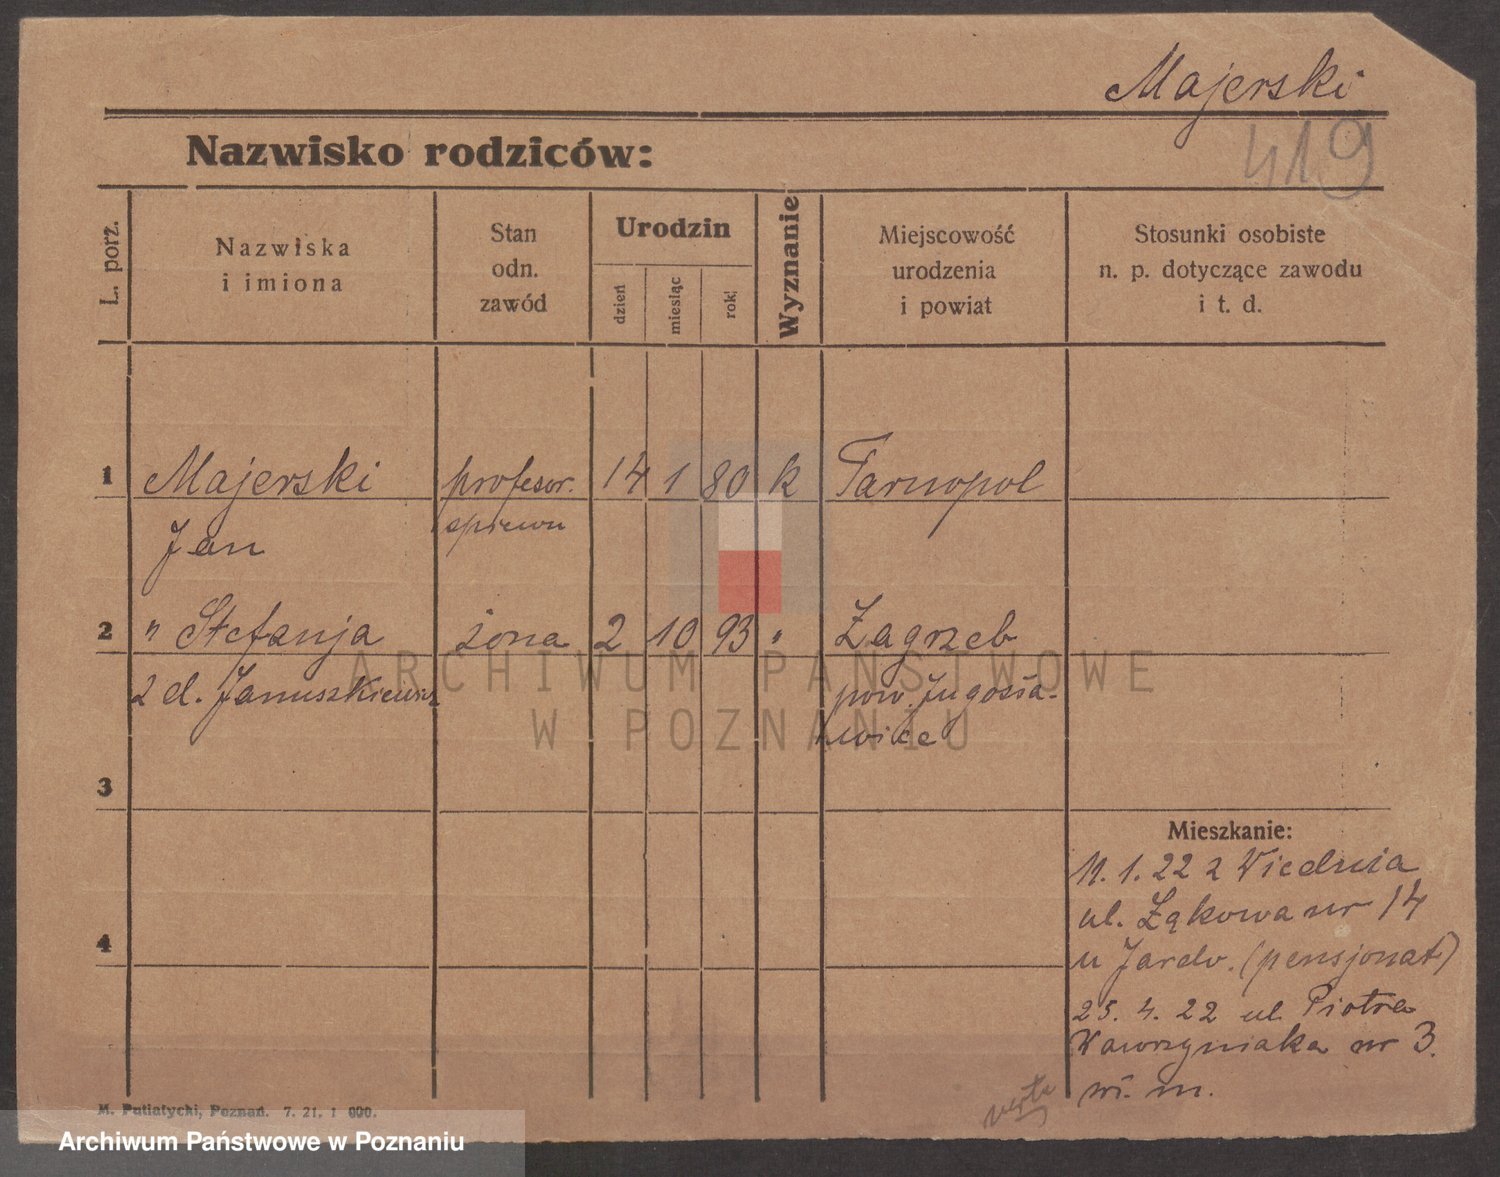 Majerski
419
Nazwisko rodziców:
L. porz.
Nazwiska
i imiona
Stan
odn.
zawód
Urodzin
dzień
miesiąc
rok
Wyznanie
Miejscowość
urodzenia
i powiat
Stosunki osobiste
n. p. dotyczące zawodu
i t. d.
1 Majerski profesor. 14 1 80 k Tarnopol
Jan śpiewu
2 " Stefanja żona 2 10 93 " Zagrzeb
z d. Januszkiewicz pow. Jugosła-
wice
3
Mieszkanie:
11. 1. 22 z Wiednia
ul. Łąkowa nr 14
4
u Jardo. (pensjonat)
25. 4. 22 ul. Piotra
Wawrzyniaka nr 3.
wł. m.
verte
M. Putiatycki, Poznań. 7. 21. 1 000.
ARCHIWUM PAŃSTWOWE
W POZNANIU
Archiwum Państwowe w Poznaniu